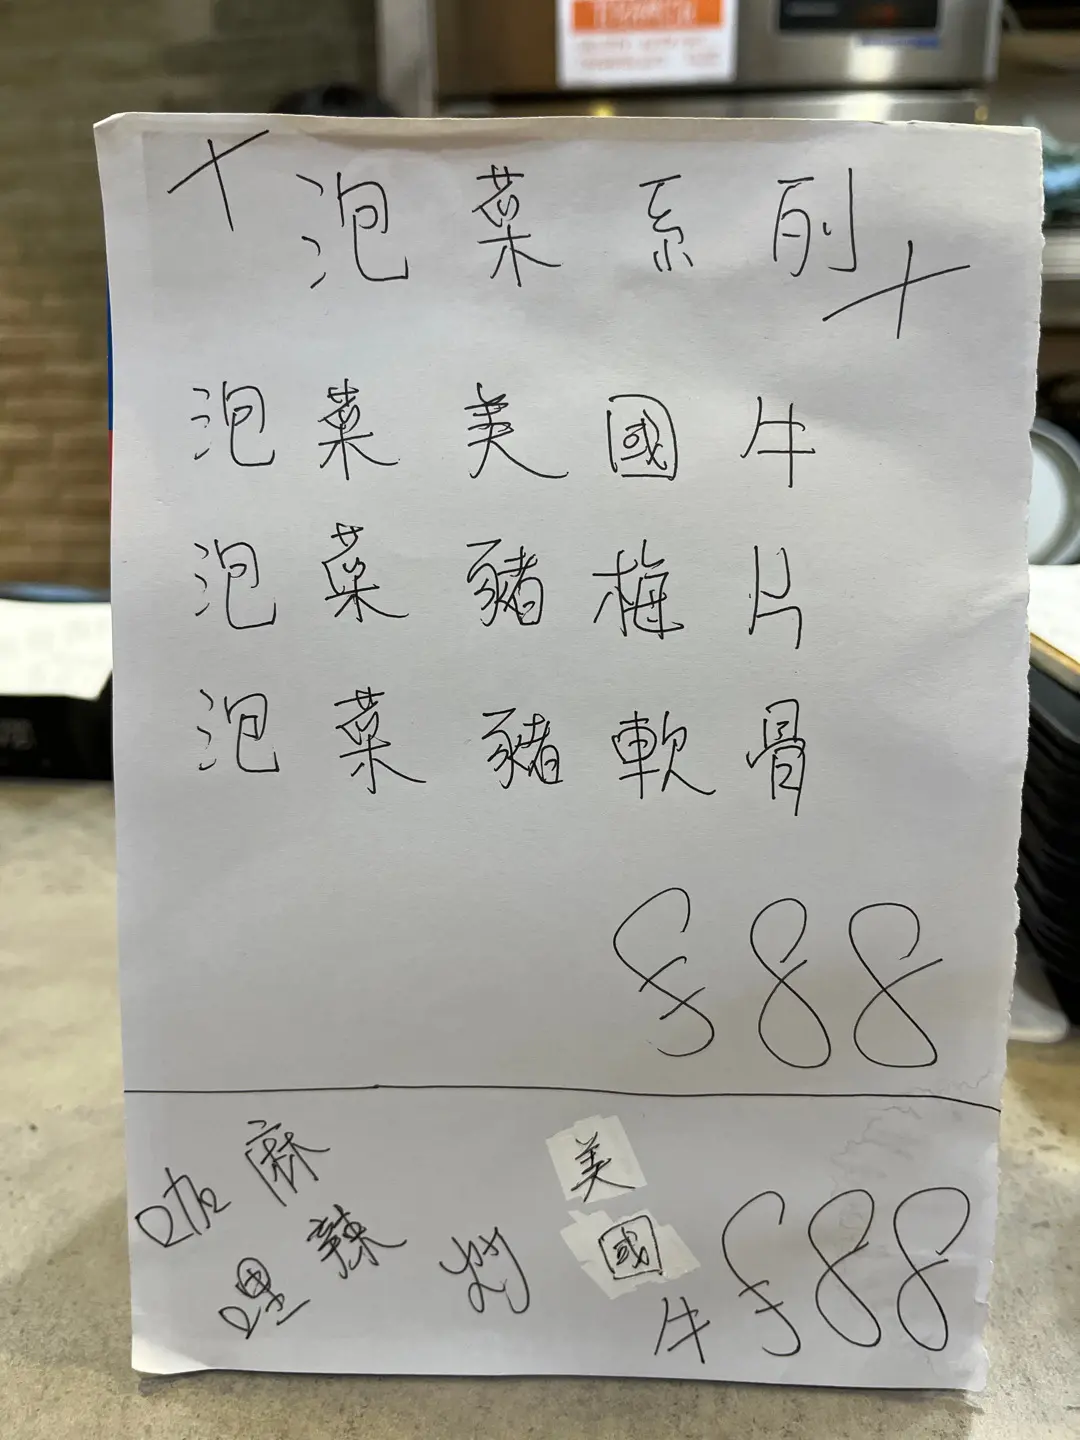 泡菜系列
泡菜美國牛
泡菜豬梅片
泡菜豬軟骨
$88
咖哩
麻辣
美國牛
$88